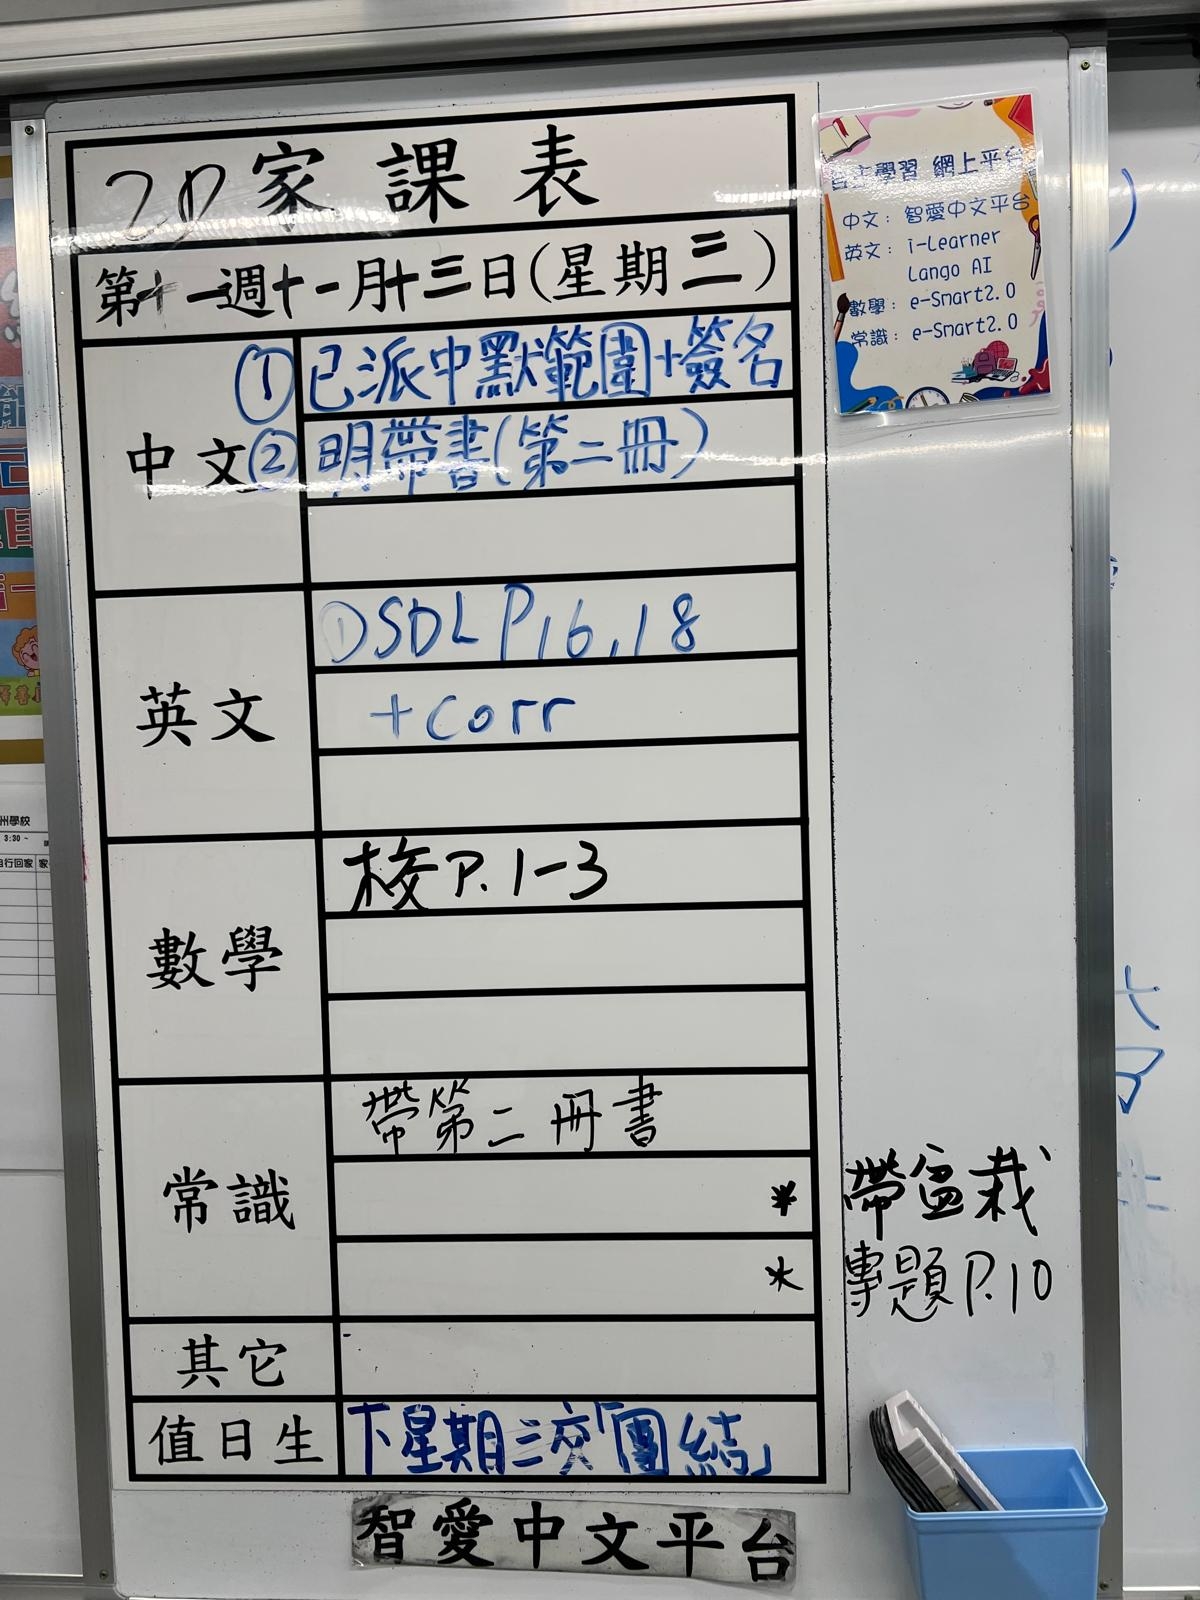 2D 家課表
第十一週十一月十三日(星期三)
中文
① 已派中默範圍+簽名
② 明帶書(第二冊)
英文
① SDL P.16,18
+corr
數學
校P.1-3
常識
帶第二冊書
* 帶盆栽
* 專題P.10
其它
值日生
下星期三交「團結」
智愛中文平台
自主學習 網上平台
中文: 智愛中文平台
英文: i-Learner
Lango AI
數學: e-Smart2.0
常識: e-Smart2.0
州學校
3:30 ~
自行回家